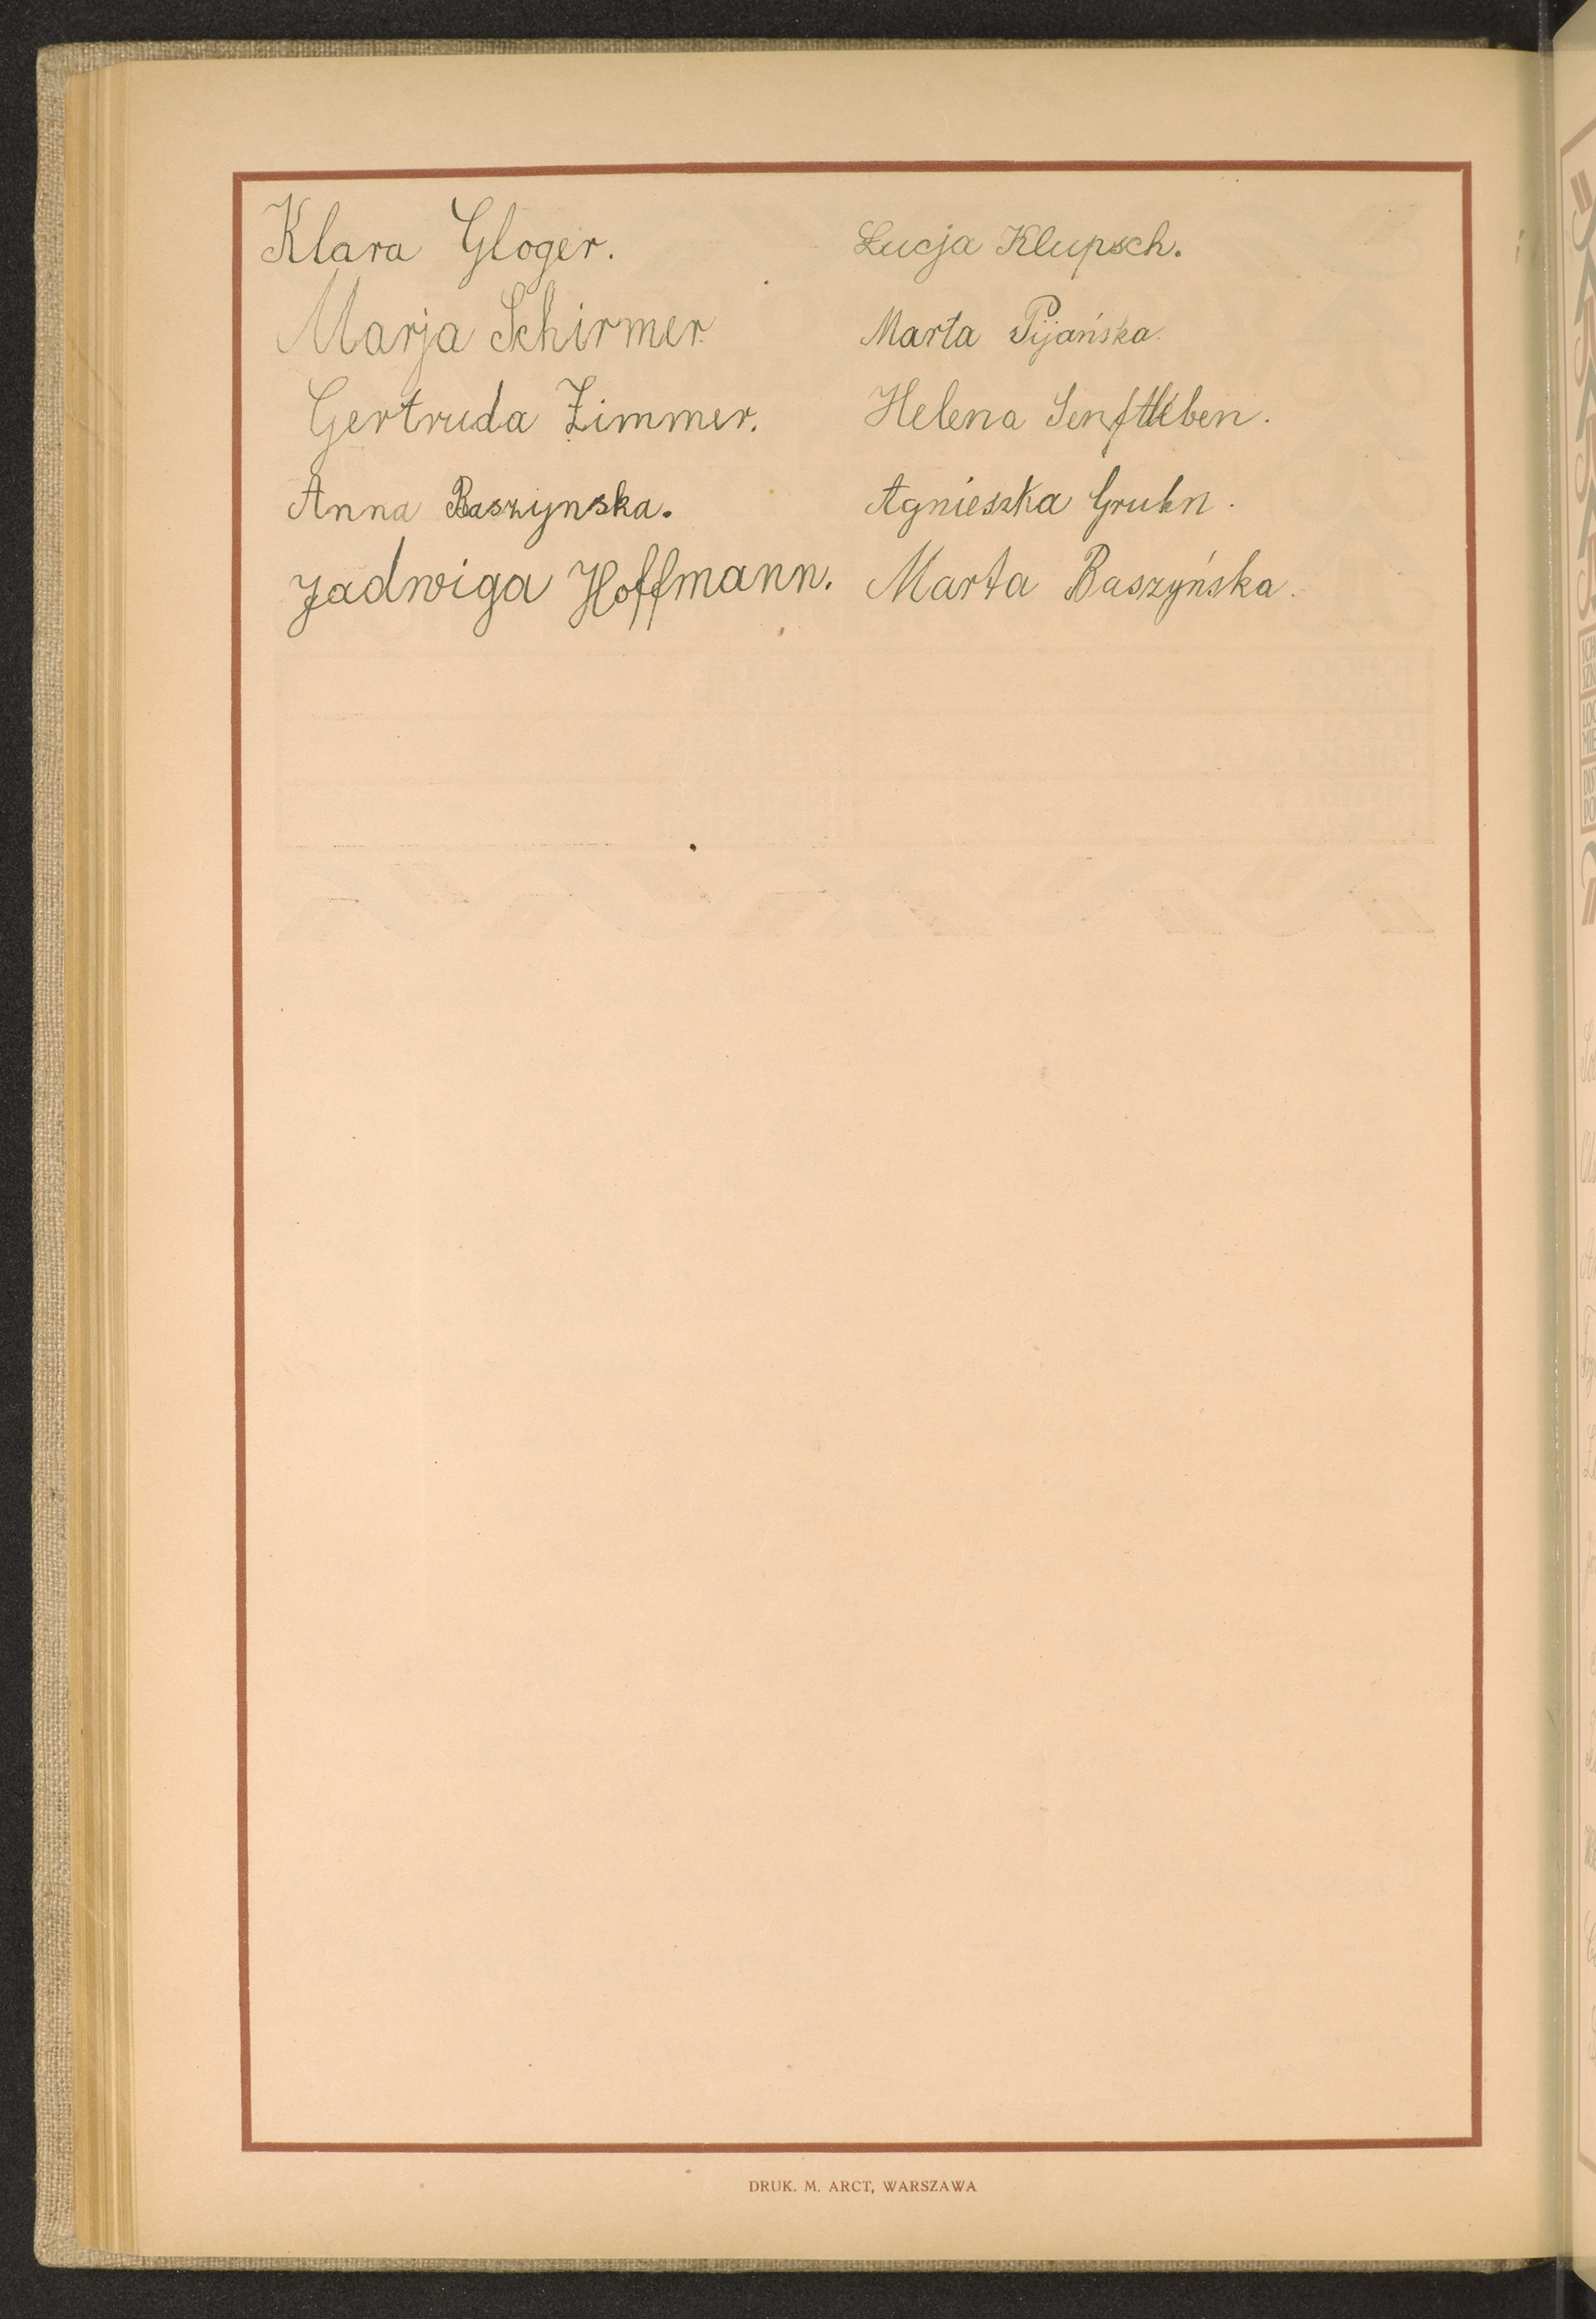 Klara Gloger.
Marja Schirmer.
Gertruda Zimmer.
Anna Baszynska.
Jadwiga Hoffmann.
Łucja Klupsch.
Marta Pijańska.
Helena Senftleben.
Agnieszka Gruhn.
Marta Baszyńska.
DRUK. M. ARCT, WARSZAWA